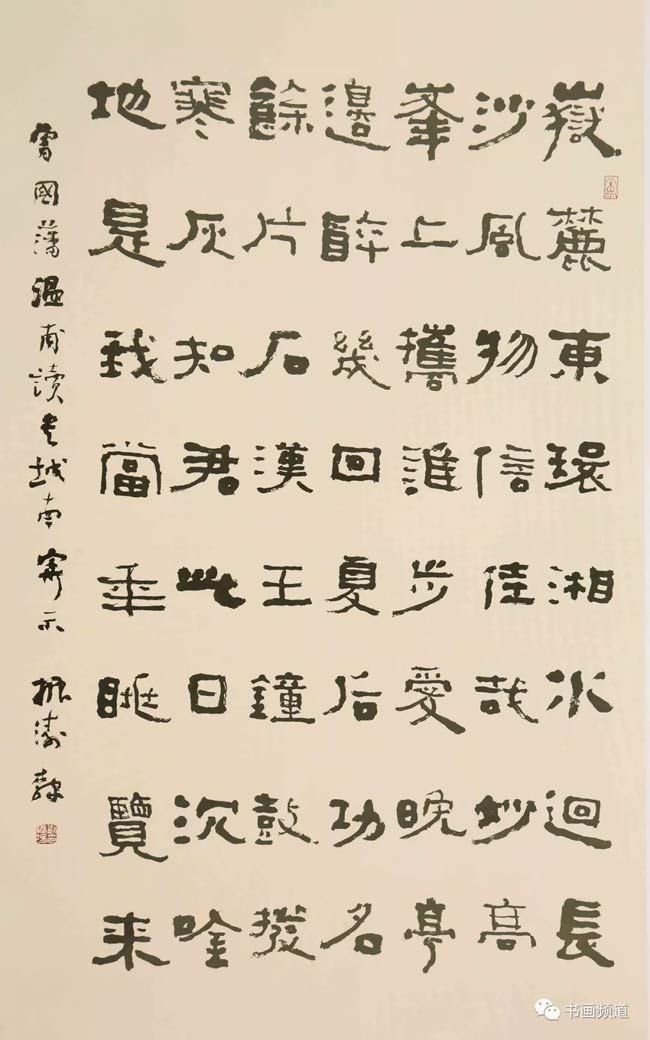 嶽麓東環湘水迴長
沙風物信佳哉妙高
峯上攜誰步愛晚亭
邊醉幾回夏后功名
餘片石漢王鐘鼓撥
寒灰知君此日沈唫
地是我當年眺覽来
曾國藩溫甫讀書城南寄示 隸
书画频道